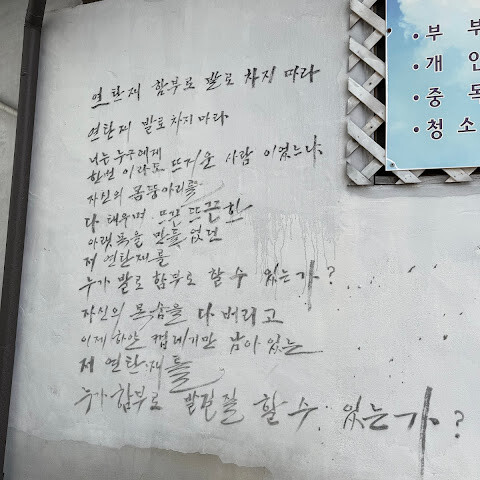 연탄재 함부로 발로 차지 따라
연탄재 발로 차지 마라
너는 누구에게
한번 이라도 뜨거운 사람 이었느냐
자신의 몸뚱아리를
다 태우며 뜨끈 뜨끈한
아랫목을 만들었던
저 연탄재를
누가 발로 함부로 할 수 있는가?
자신의 목숨을 다 버리고
이제 하얀 껍데기만 남아 있는
저 연탄재를
누가 함부로 발길질 할 수 있는가?
·부 부
·개 인
·중 독
·청 소